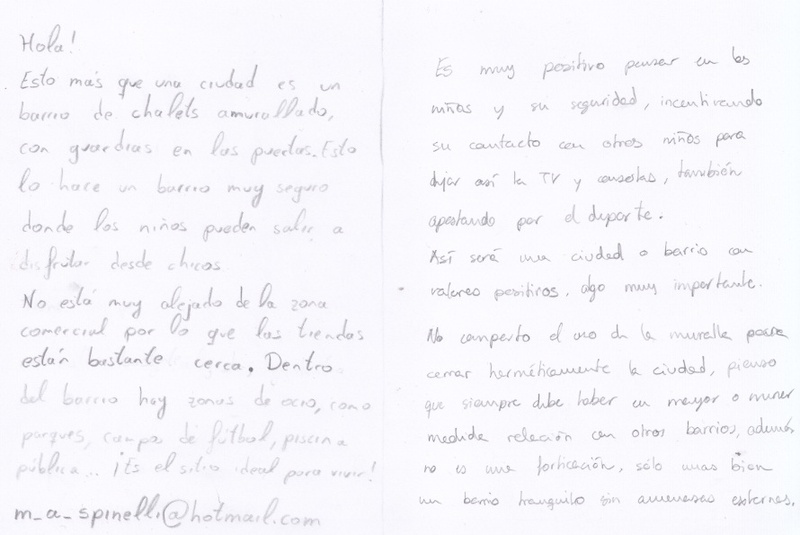 Hola!
Esto más que una ciudad es un
barrio de chalets amurallado,
con guardias en las puertas. Esto
lo hace un barrio muy seguro
donde los niños pueden salir a
disfrutar desde chicos.
No está muy alejado de la zona
comercial por lo que las tiendas
están bastante cerca. Dentro
del barrio hay zonas de ocio, como
parques, campos de fútbol, piscina
pública... ¡Es el sitio ideal para vivir!
m_a_spinelli@hotmail.com
Es muy positivo pensar en los
niños y su seguridad, incentivando
su contacto con otros niños para
dejar así la TV y consolas, también
apostando por el deporte.
Así será una ciudad o barrio con
valores positivos, algo muy importante.
No comparto el uso de la muralla para
cerrar herméticamente la ciudad, pienso
que siempre debe haber en mayor o menor
medida relación con otros barrios, además
no es una forticación, sólo mas bien
un barrio tranquilo sin amenazas externas.